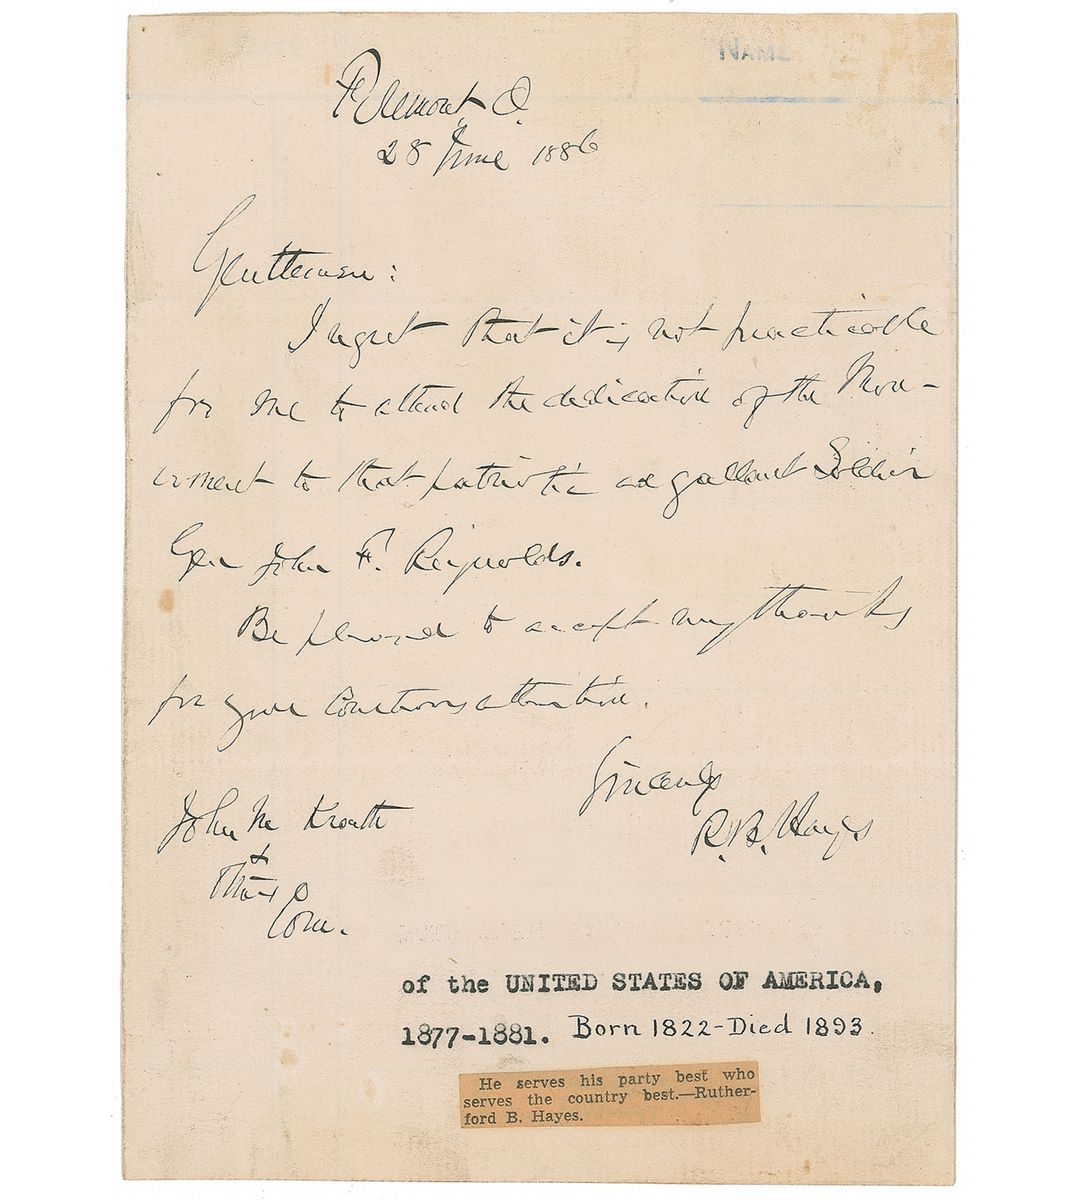 NAME
Fremont, O.
28 June 1886
Gentlemen:
I regret that it is not practicable
for me to attend the dedication of the Mon-
ument to that patriotic and gallant Soldier
Gen John F. Reynolds.
Be pleased to accept my thanks
for your courteous attention.
Sincerely
R. B. Hayes
John M Krauth
&
Com.
of the UNITED STATES OF AMERICA,
1877-1881. Born 1822-Died 1893.
He serves his party best who
serves the country best.—Ruther-
ford B. Hayes.